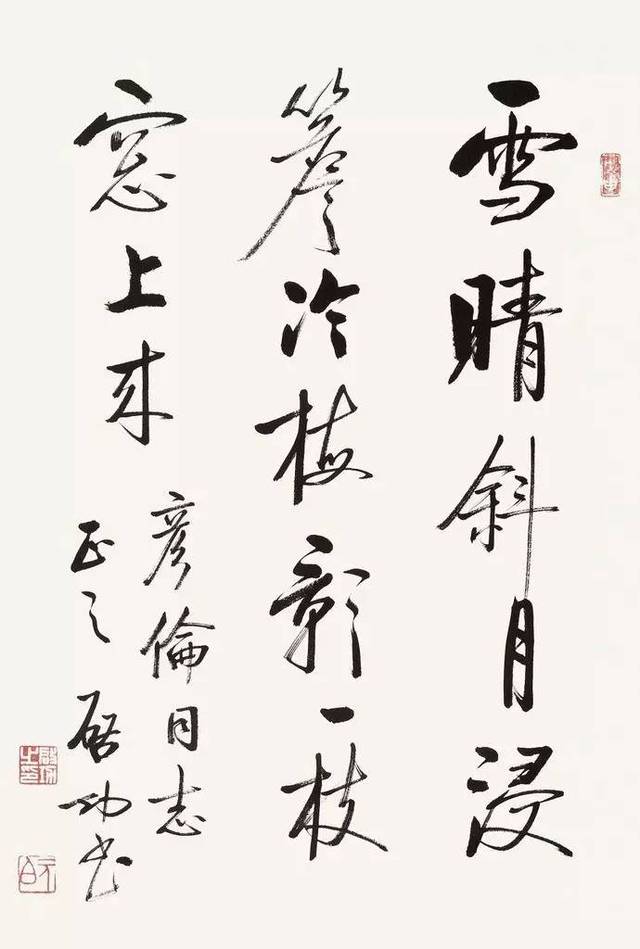 雪晴斜月浸
簷冷梅影一枝
窓上来
彦倫同志
正之 啓功书